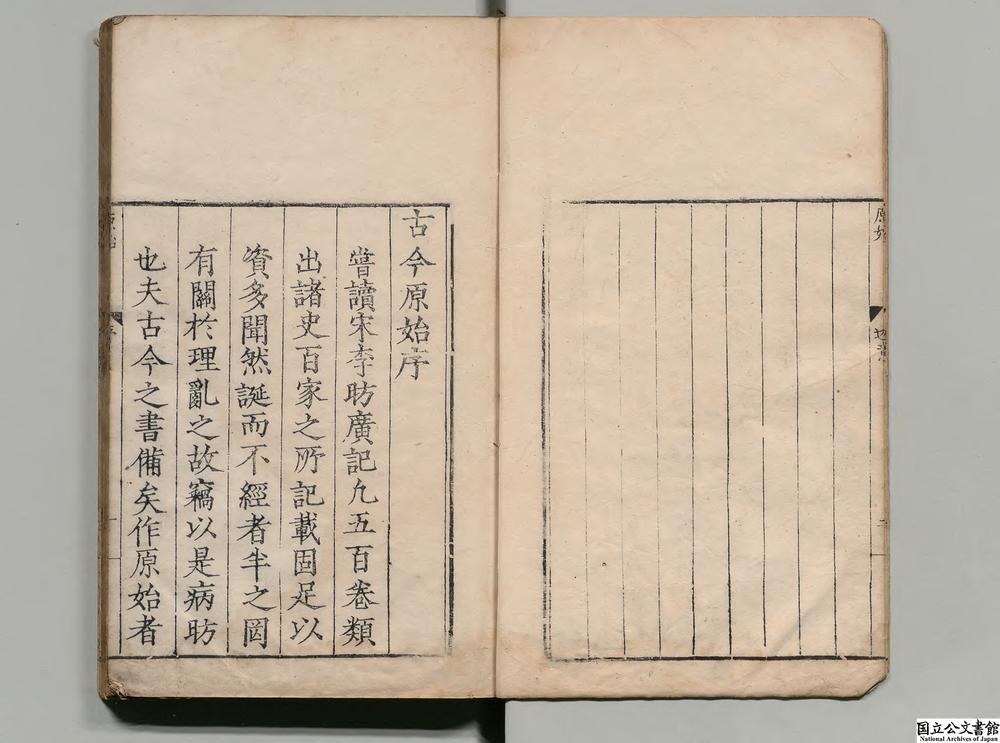 古今原始序
嘗讀宋李昉廣記凡五百卷類
出諸史百家之所記載固足以
資多聞然誕而不經者半之罔
有關於理亂之故竊以是病昉
也夫古今之書備矣作原始者
原始
国立公文書館
National Archives of Japan